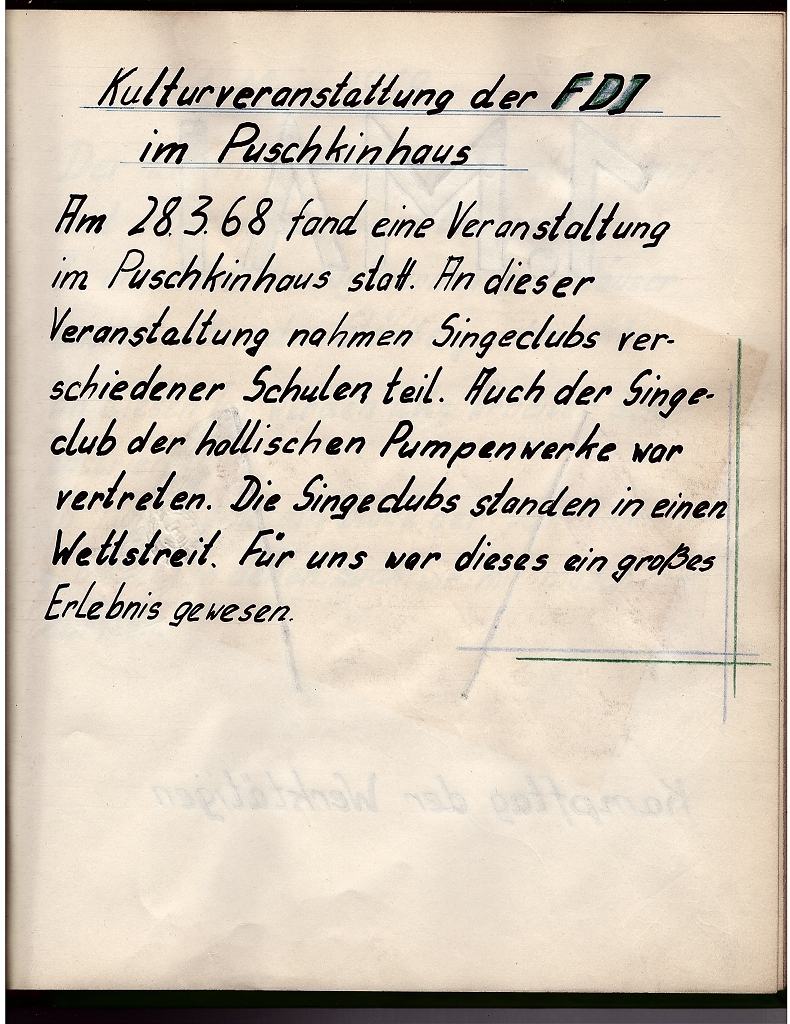 Kulturveranstaltung der FDJ
im Puschkinhaus
Am 28.3.68 fand eine Veranstaltung
im Puschkinhaus statt. An dieser
Veranstaltung nahmen Singeclubs ver-
schiedener Schulen teil. Auch der Singe-
club der hallischen Pumpenwerke war
vertreten. Die Singeclubs standen in einen
Wettstreit. Für uns war dieses ein großes
Erlebnis gewesen.
1. MAI
Kampftag der Werktätigen